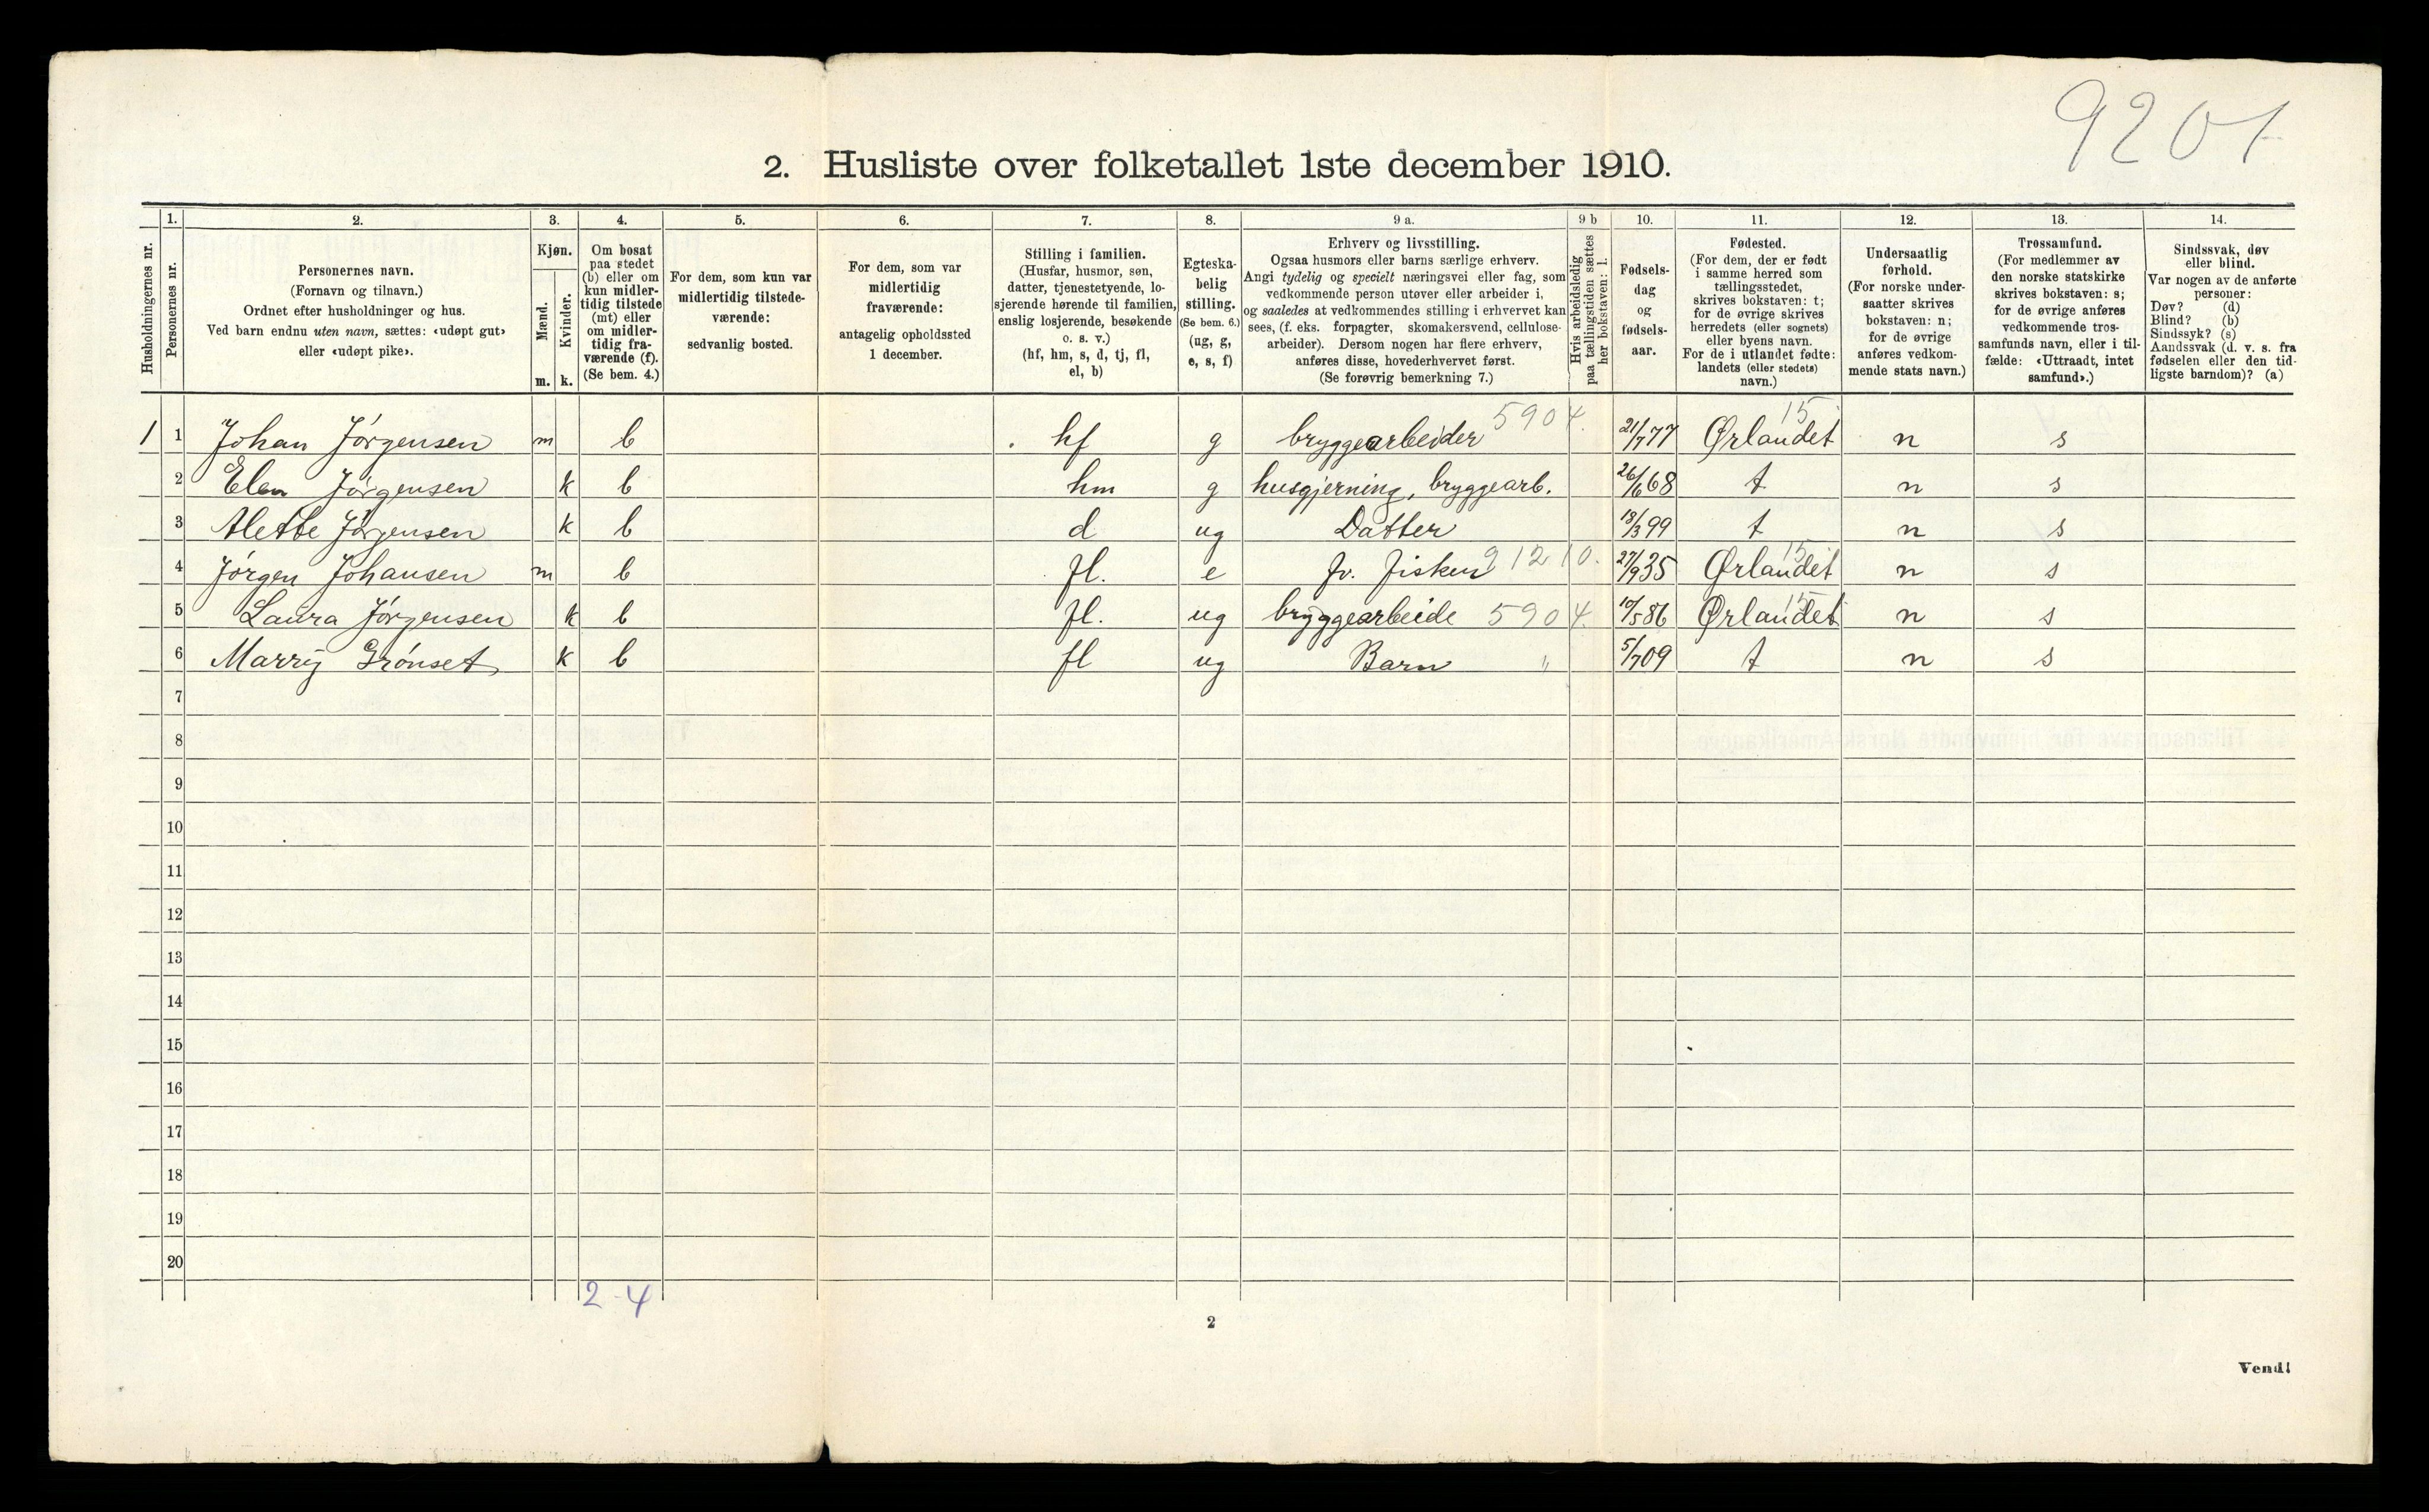 9201
2. Husliste over folketallet 1ste december 1910.
Husholdningernes nr.
1.
Personernes nr.
2.
Personernes navn.
(Fornavn og tilnavn.)
Ordnet efter husholdninger og hus.
Ved barn endnu uten navn, sættes: «udøpt gut»
eller «udøpt pike».
3.
Kjøn.
Mænd.
m.
Kvinder.
k.
4.
Om bosat
paa stedet
(b) eller om
kun midler-
tidig tilstede
(mt) eller
om midler-
tidig fra-
værende (f).
(Se bem. 4.)
5.
For dem, som kun var
midlertidig tilstede-
værende:
sedvanlig bosted.
6.
For dem, som var
midlertidig
fraværende:
antagelig opholdssted
1 december.
7.
Stilling i familien.
(Husfar, husmor, søn,
datter, tjenestetyende, lo-
sjerende hørende til familien,
enslig losjerende, besøkende
o. s. v.)
(hf, hm, s, d, tj, fl,
el, b)
8.
Egteska-
belig
stilling.
(Se bem. 6.)
(ug, g,
e, s, f)
9 a.
Erhverv og livsstilling.
Ogsaa husmors eller barns særlige erhverv.
Angi tydelig og specielt næringsvei eller fag, som
vedkommende person utøver eller arbeider i,
og saaledes at vedkommendes stilling i erhvervet kan
sees, (f. eks. forpagter, skomakersvend, cellulose-
arbeider). Dersom nogen har flere erhverv,
anføres disse, hovederhvervet først.
(Se forøvrig bemerkning 7.)
9 b
Hvis arbeidsledig
paa tællingstiden sættes
her bokstaven: l.
10.
Fødsels-
dag
og
fødsels-
aar.
11.
Fødested.
(For dem, der er født
i samme herred som
tællingsstedet,
skrives bokstaven: t;
for de øvrige skrives
herredets (eller sognets)
eller byens navn.
For de i utlandet fødte:
landets (eller stedets)
navn.)
12.
Undersaatlig
forhold.
(For norske under-
saatter skrives
bokstaven: n;
for de øvrige
anføres vedkom-
mende stats navn.)
13.
Trossamfund.
(For medlemmer av
den norske statskirke
skrives bokstaven: s;
for de øvrige anføres
vedkommende tros-
samfunds navn, eller i til-
fælde: «Uttraadt, intet
samfund».)
14.
Sindssvak, døv
eller blind.
Var nogen av de anførte
personer:
Døv? (d)
Blind? (b)
Sindssyk? (s)
Aandssvak (d. v. s. fra
fødselen eller den tid-
ligste barndom)? (a)
1 1 Johan Jørgensen m b hf g bryggearbeider 5904. 21/7 77 Ørlandet 15 n s
2 Elen Jørgensen k b hm g husgjerning, bryggearb. 26/6 68 t n s
3 Alette Jørgensen k b d ug Datter 18/3 99 t n s
4 Jørgen Johansen m b fl. e fv. fisker 91210. 27/9 35 Ørlandet 15 n s
5 Laura Jørgensen k b fl. ug bryggearbeide 5904. 10/5 86 Ørlandet 15 n s
6 Marry Grønset k b fl ug Barn " 5/7 09 t n s
7
8
9
10
11
12
13
14
15
16
17
18
19
20
2-4
2
Vend!